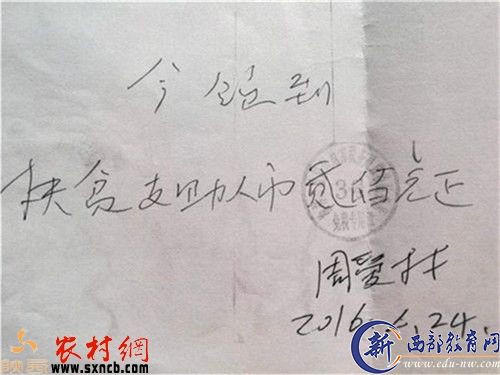 今领到
扶贫支助人币贰佰元正
周
2016.6.24.
陕西
农村網
www.sxncb.com
新
西部教育网
www.-edu-new.com